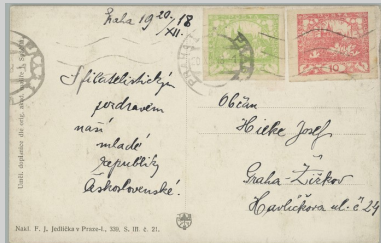 Praha 19 20/XII. 18
S filatelistickým
pozdravem
naší
mladé
republiky
Československé.
Občan
Hielke Josef
Praha-Žižkov
Havlíčkova ul. č 24
PRAHA
Nakl. F. J. Jedlička v Praze-I., 539. S. III. č. 21.